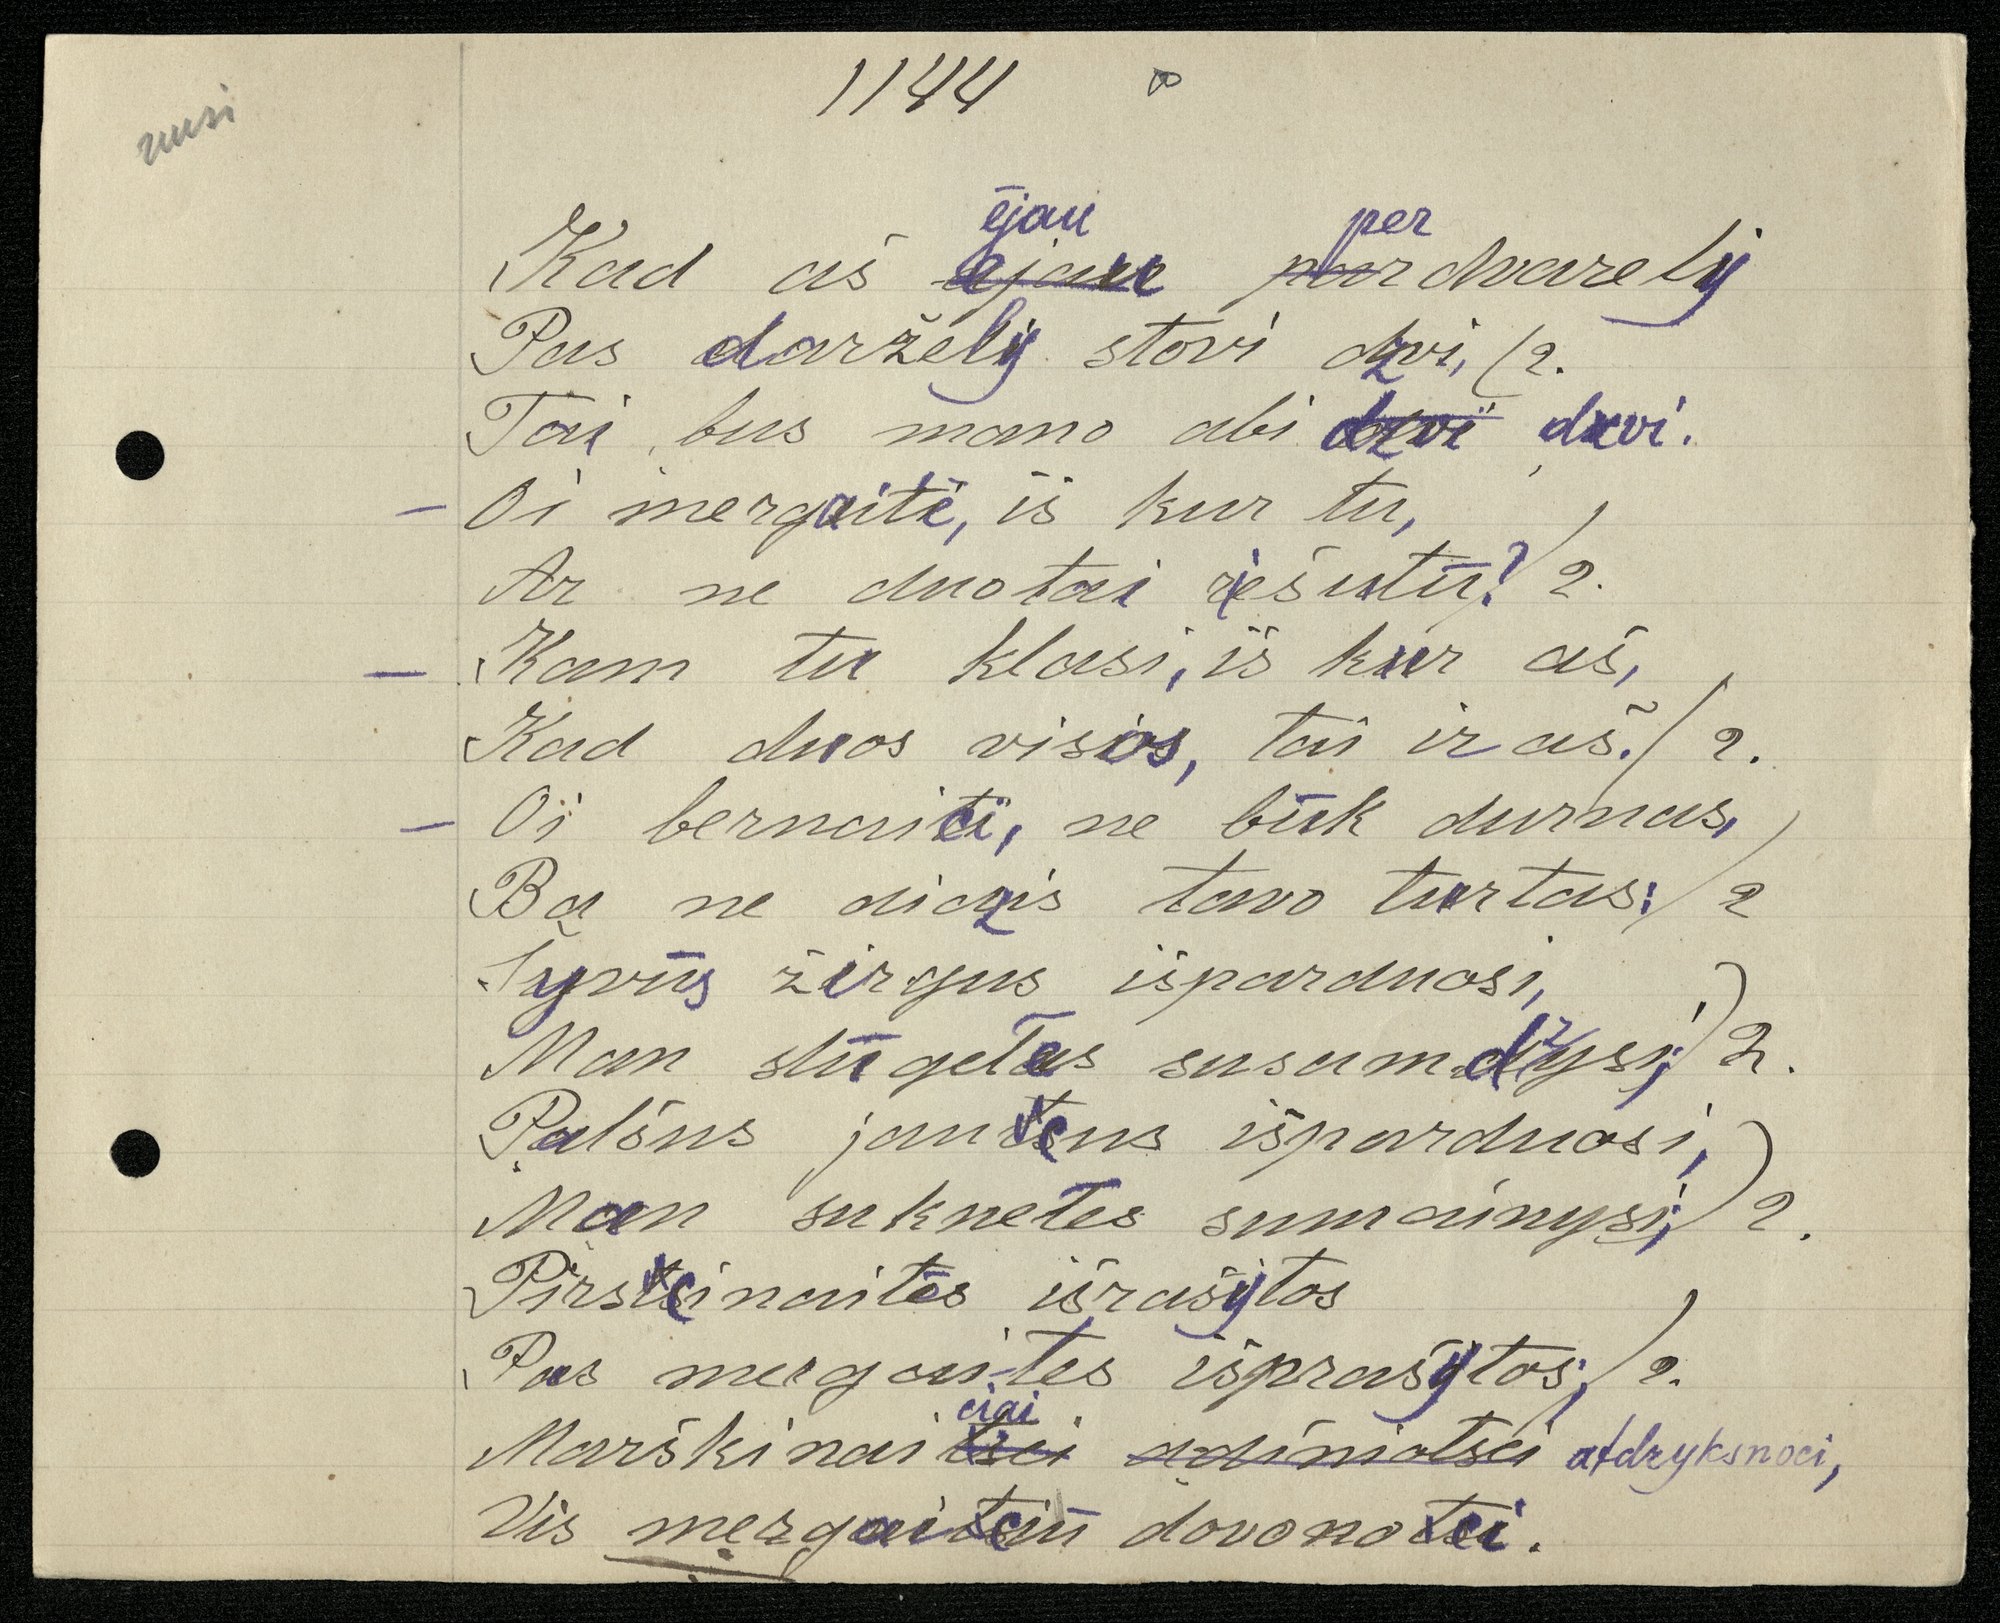 1144
Kad aš ėjau per dvarelį
Pas darželį stovi dzvi, (2.
Tai bus mano abi dzvi dzvi.
– Oi mergaitė, iš kur tu,
Ar ne duotai riešutū? )2.
– Kam tu klasi, iš kur aš,
Kad duos visos, tai ir aš. )2.
– Oi bernaiti, ne būk durnas,
Ba ne didzis tavo turtas: )2
Šyvūs žirgus išparduosi,
Man slūgeles susamdzysi; )2.
Palšus jaucus išparduosi,
Man sukneles sumainysi; )2.
Pirscinaitės išrašytos
Pas mergaites išprašytos; )2.
Marškinaiciai atdryksnoci,
Vis mergaicių dovonoci.